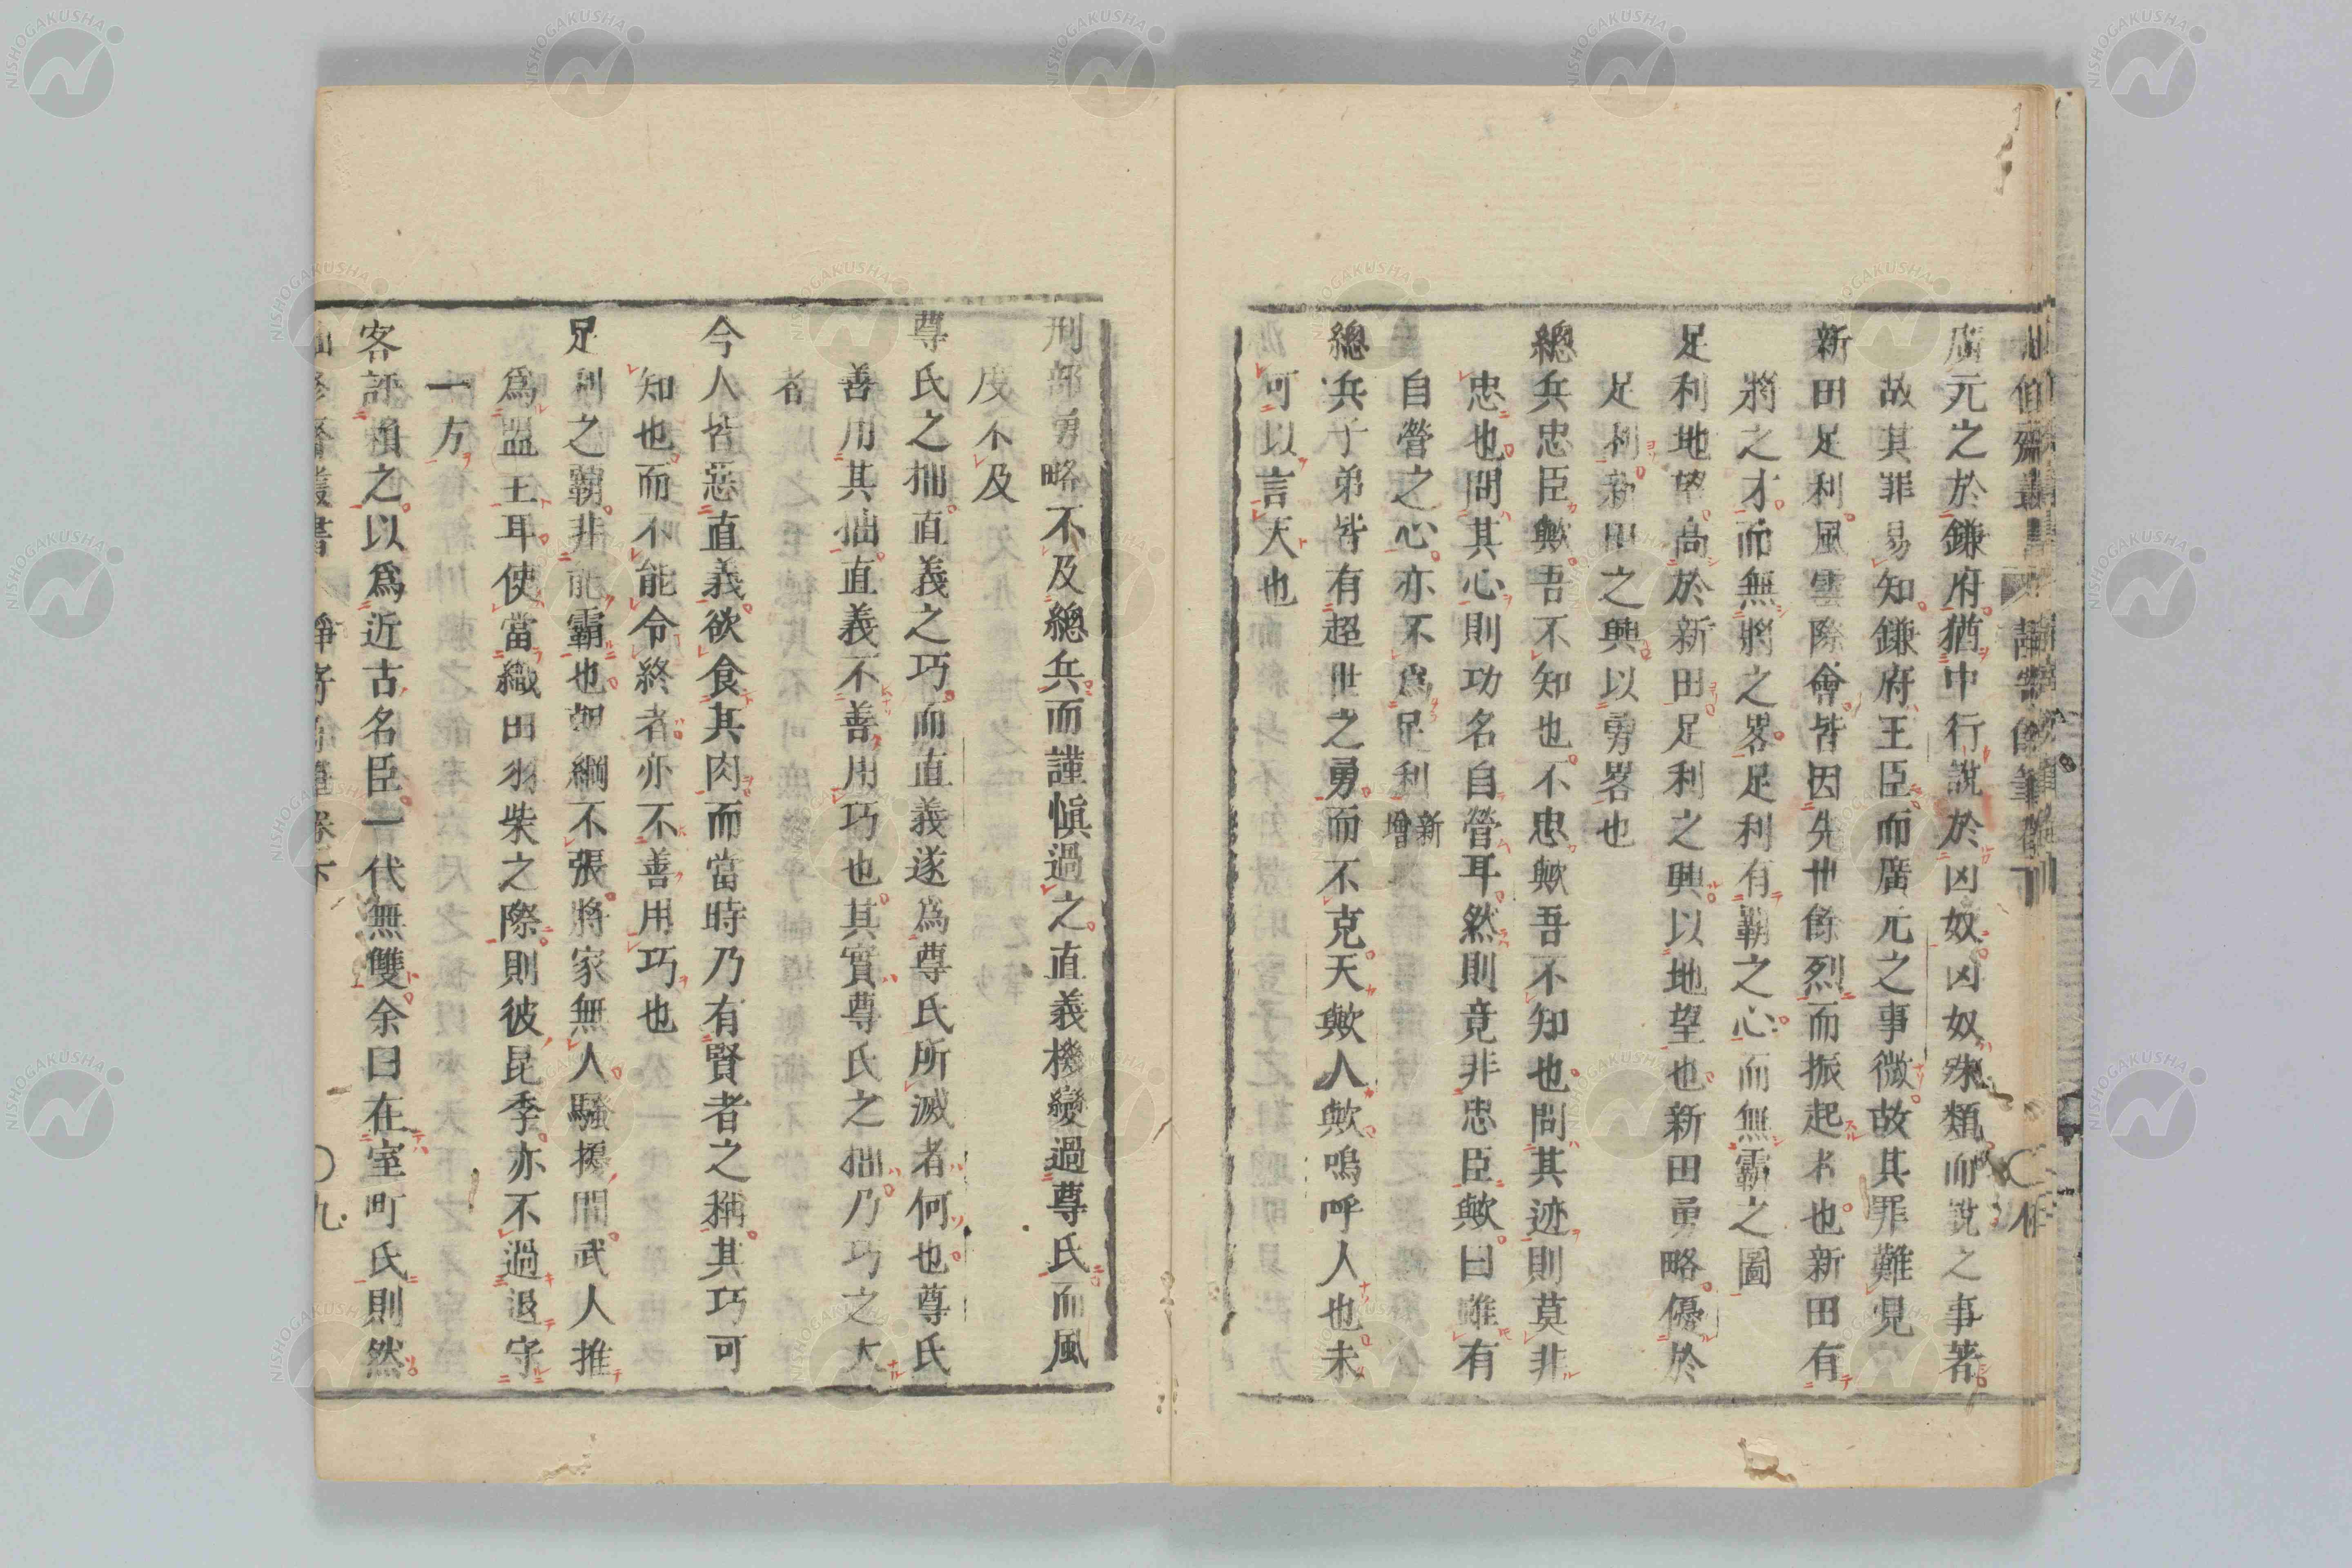 廣元之於鎌府猶中行說於凶奴凶奴殊類而說之事著
故其罪易知鎌府王臣而廣元之事微故其罪難見
新田足利風雲際會皆因先世餘烈而振起者也新田有
將之才而無將之畧足利有霸之心而無霸之圖
足利地望高於新田足利之興以地望也新田勇略優於
足利新田之興以勇畧也
總兵忠臣歟吾不知也不忠歟吾不知也問其迹則莫非
忠也問其心則功名自營耳然則竟非忠臣歟曰雖有
自營之心亦不爲足利新增
總兵子弟皆有超世之勇而不克天歟人歟嗚呼人也未
可以言天也
刑部勇略不及總兵而謹愼過之直義機變過尊氏而風
度不及
尊氏之拙直義之巧而直義遂爲尊氏所滅者何也尊氏
善用其拙直義不善用巧也其實尊氏之拙乃巧之大
者
今人皆惡直義欲食其肉而當時乃有賢者之稱其巧可
知也而不能令終者亦不善用巧也
足利之霸非能霸也朝綱不張將家無人騷擾間武人推
爲盟主耳使當織田羽柴之際則彼昆季亦不過退守
一方
客評賴之以爲近古名臣一代無雙余曰在室町氏則然
九
NISHOGAKUSHA